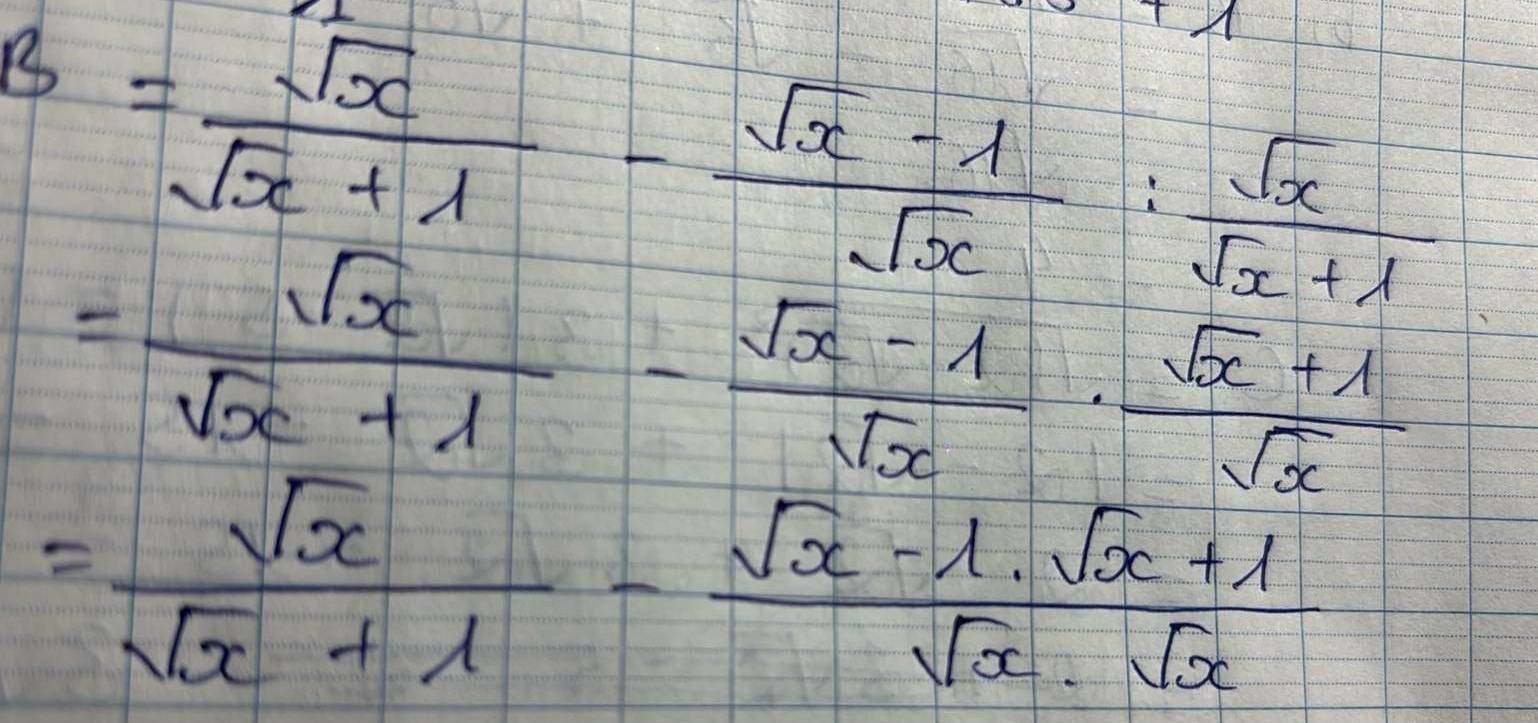 + 1
B = √x / (√x + 1) - (√x - 1) / √x : √x / (√x + 1)
= √x / (√x + 1) - (√x - 1) / √x . (√x + 1) / √x
= √x / (√x + 1) - (√x - 1 . √x + 1) / (√x . √x)